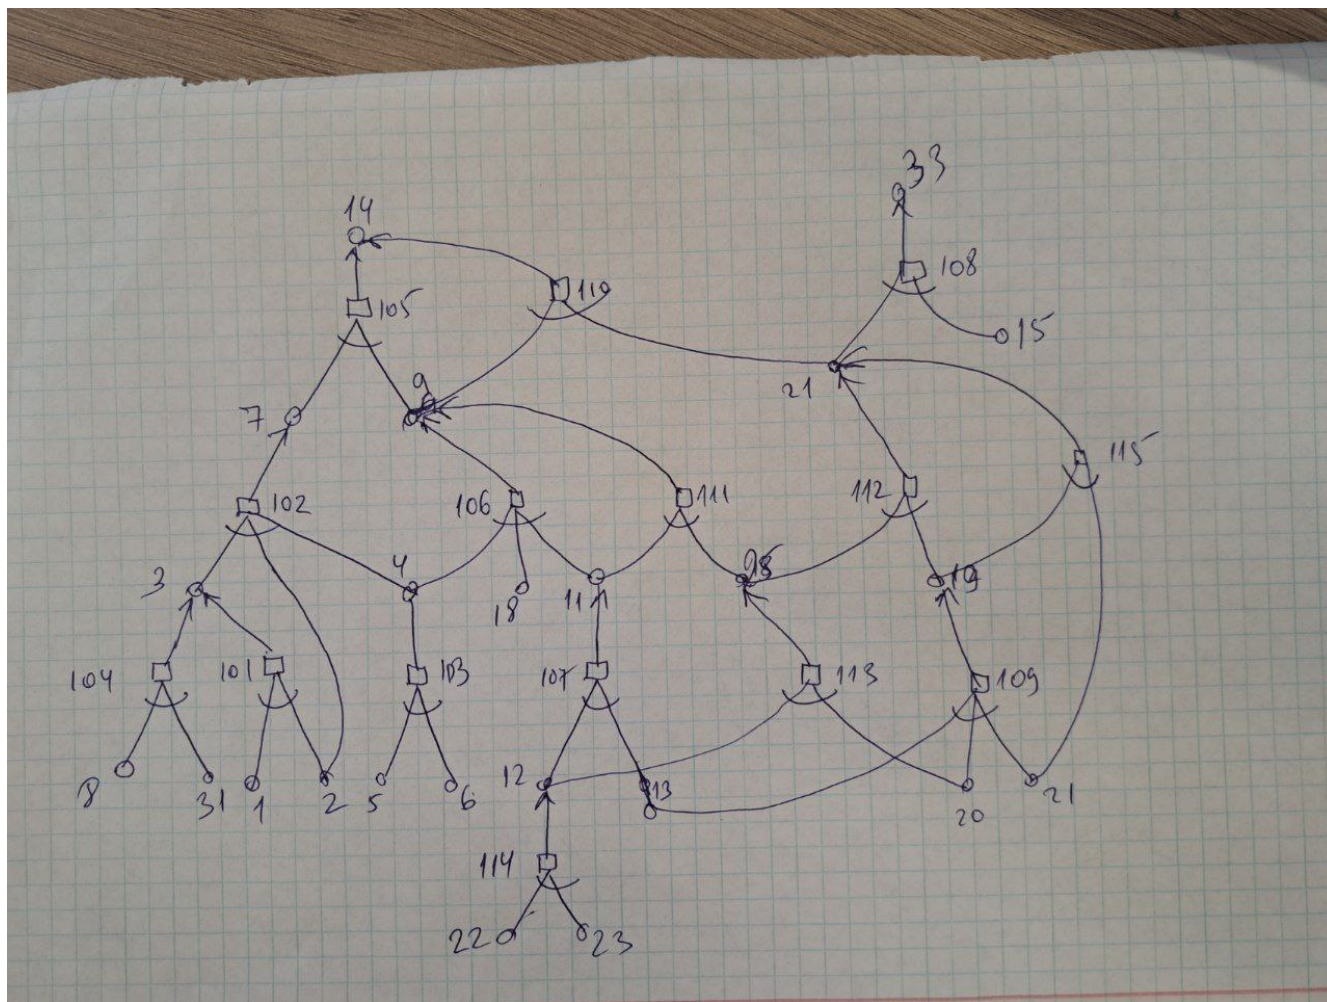 33
14
108
110
105
15
9
21
7
115
102
106
111
112
3
4
18
11
19
104
101
103
107
113
109
8
31
1
2
5
6
12
13
20
21
114
22
23